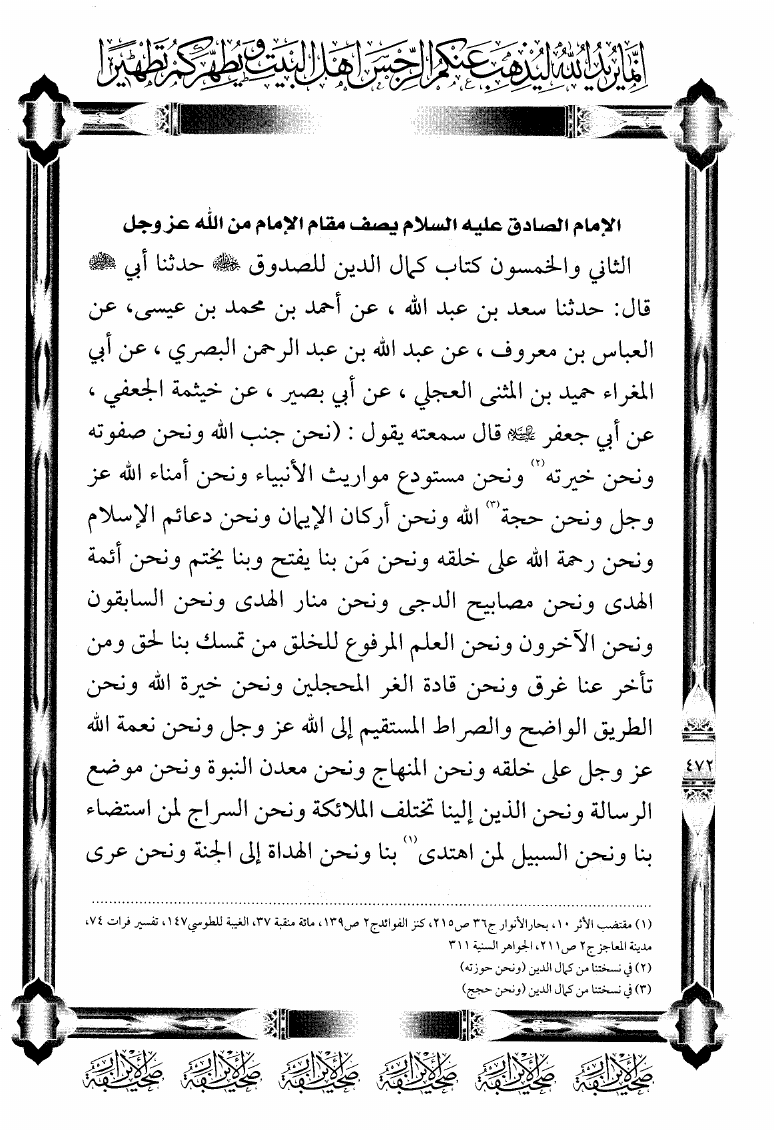 إنما يريد الله ليذهب عنكم الرجس أهل البيت ويطهركم تطهيرا
الإمام الصادق عليه السلام يصف مقام الإمام من الله عز وجل
الثاني والخمسون كتاب كمال الدين للصدوق حدثنا أبي
قال: حدثنا سعد بن عبد الله ، عن أحمد بن محمد بن عيسى، عن
العباس بن معروف ، عن عبد الله بن عبد الرحمن البصري ، عن أبي
المغراء حميد بن المثنى العجلي ، عن أبي بصير ، عن خيثمة الجعفي ،
عن أبي جعفر ﷺ قال سمعته يقول : (نحن جنب الله ونحن صفوته
ونحن خيرته(٢) ونحن مستودع مواريث الأنبياء ونحن أمناء الله عز
وجل ونحن حجة(٣) الله ونحن أركان الإيمان ونحن دعائم الإسلام
ونحن رحمة الله على خلقه ونحن مَن بنا يفتح وبنا يختم ونحن أئمة
الهدى ونحن مصابيح الدجى ونحن منار الهدى ونحن السابقون
ونحن الآخرون ونحن العلم المرفوع للخلق من تمسك بنا لحق ومن
تأخر عنا غرق ونحن قادة الغر المحجلين ونحن خيرة الله ونحن
الطريق الواضح والصراط المستقيم إلى الله عز وجل ونحن نعمة الله
عز وجل على خلقه ونحن المنهاج ونحن معدن النبوة ونحن موضع
الرسالة ونحن الذين إلينا تختلف الملائكة ونحن السراج لمن استضاء
بنا ونحن السبيل لمن اهتدى(١) بنا ونحن الهداة إلى الجنة ونحن عرى
٤٧٢
(١) مقتضب الأثر ١٠، بحارالأنوار ج٣٦ ص٢١٥، كنز الفوائدج٢ ص١٣٩، مائة منقبة ٣٧، الغيبة للطوسي١٤٧، تفسير فرات ٧٤،
مدينة المعاجز ج٢ ص٢١١، الجواهر السنية ٣١١
(٢) في نسختنا من كمال الدين (ونحن حوزته)
(٣) في نسختنا من كمال الدين (ونحن حجج)
صحيفة الأبرار صحيفة الأبرار صحيفة الأبرار صحيفة الأبرار صحيفة الأبرار صحيفة الأبرار